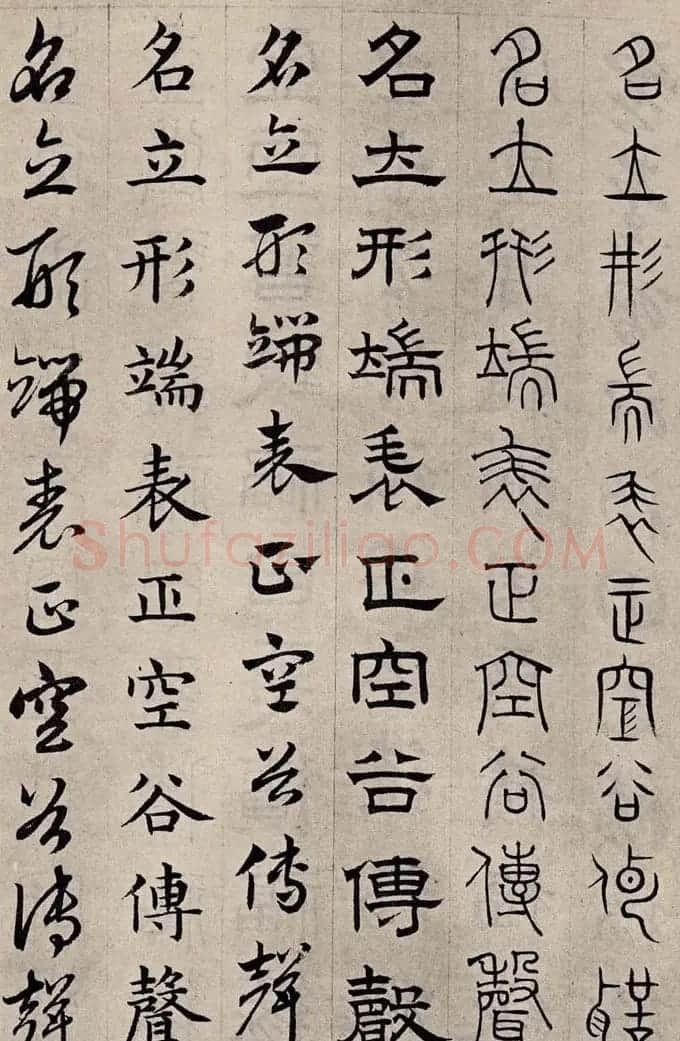 名立形端表正空谷傳聲
名立形端表正空谷傳聲
名立形端表正空谷傳聲
名立形端表正空谷傳聲
名立形端表正空谷傳聲
名立形端表正空谷傳聲
Shufaziliao.COM